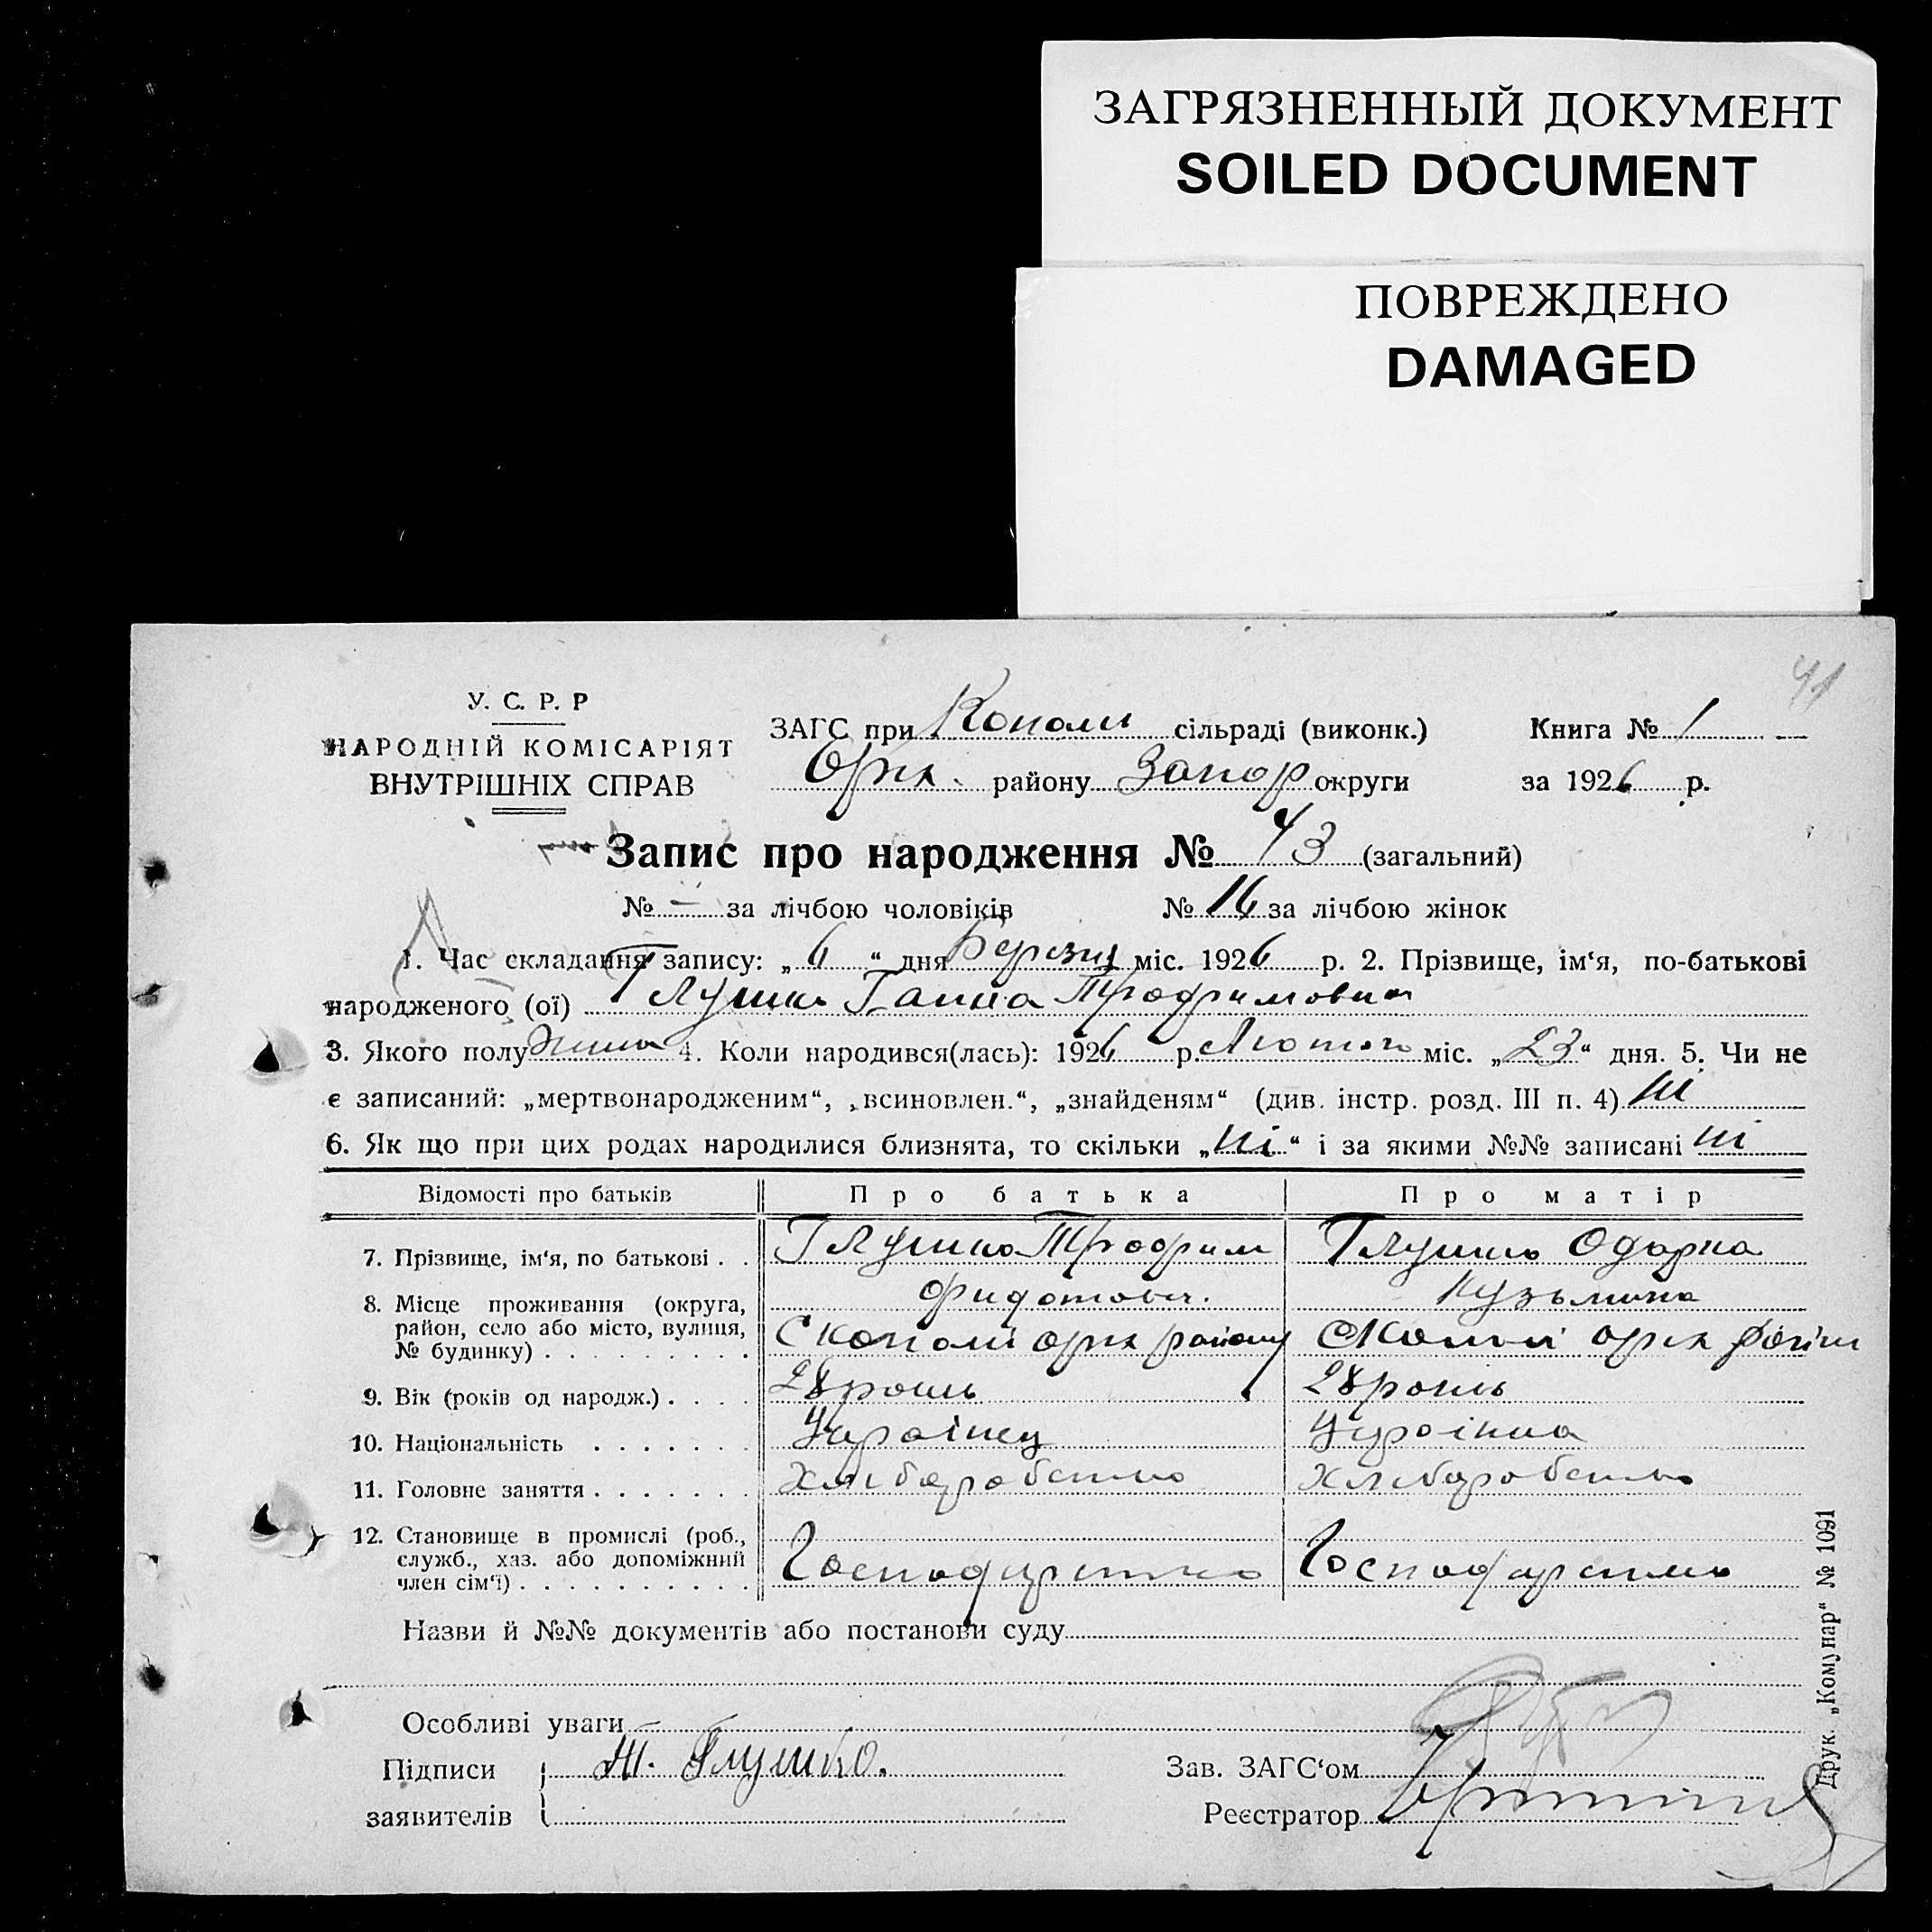 ЗАГРЯЗНЕННЫЙ ДОКУМЕНТ
SOILED DOCUMENT
ПОВРЕЖДЕНО
DAMAGED
41
У. С. Р. Р
НАРОДНІЙ КОМІСАРІЯТ
ВНУТРІШНІХ СПРАВ
ЗАГС при Копани сільраді (виконк.) Книга № 1
Оріх. району Запор округи за 1926 р.
Запис про народження № 43 (загальний)
№ - за лічбою чоловіків № 16 за лічбою жінок
1. Час складання запису: „ 6 “ дня Березня міс. 1926 р. 2. Прізвище, ім‘я, по-батькові
народженого (ої) Глушко Ганна Трофимовна
3. Якого полу 4. Коли народився(лась): 1926 р. Лютого міс. „ 23 “ дня. 5. Чи не
є записаний: „мертвонародженим“, „всиновлен.“, „знайденям“ (див. інстр. розд. III п. 4) ні
6. Як що при цих родах народилися близнята, то скільки „ ні “ і за якими №№ записані ні
Відомості про батьків Про батька Про матір
7. Прізвище, ім‘я, по батькові . . Глушко Трофим Глушко Одарка
Федотович. Кузьмина
8. Місце проживання (округа,
район, село або місто, вулиця,
№ будинку) . . . . . . . . . С Копани оріх району С Копани оріх
9. Вік (років од народж.) . . . . 28 28
10. Національність . . . . . . . Українец Українка
11. Головне заняття . . . . . . . Хліборобство Хліборобство
12. Становище в промислі (роб.,
служб., хаз. або допоміжний
член сім‘ї) . . . . . . . . . . Господарство Господарство
Назви й №№ документів або постанови суду
Особливі уваги
Підписи Т. Глушко.
заявителів
Зав. ЗАГС‘ом
Реєстратор
Друк. „Комунар“ № 1091